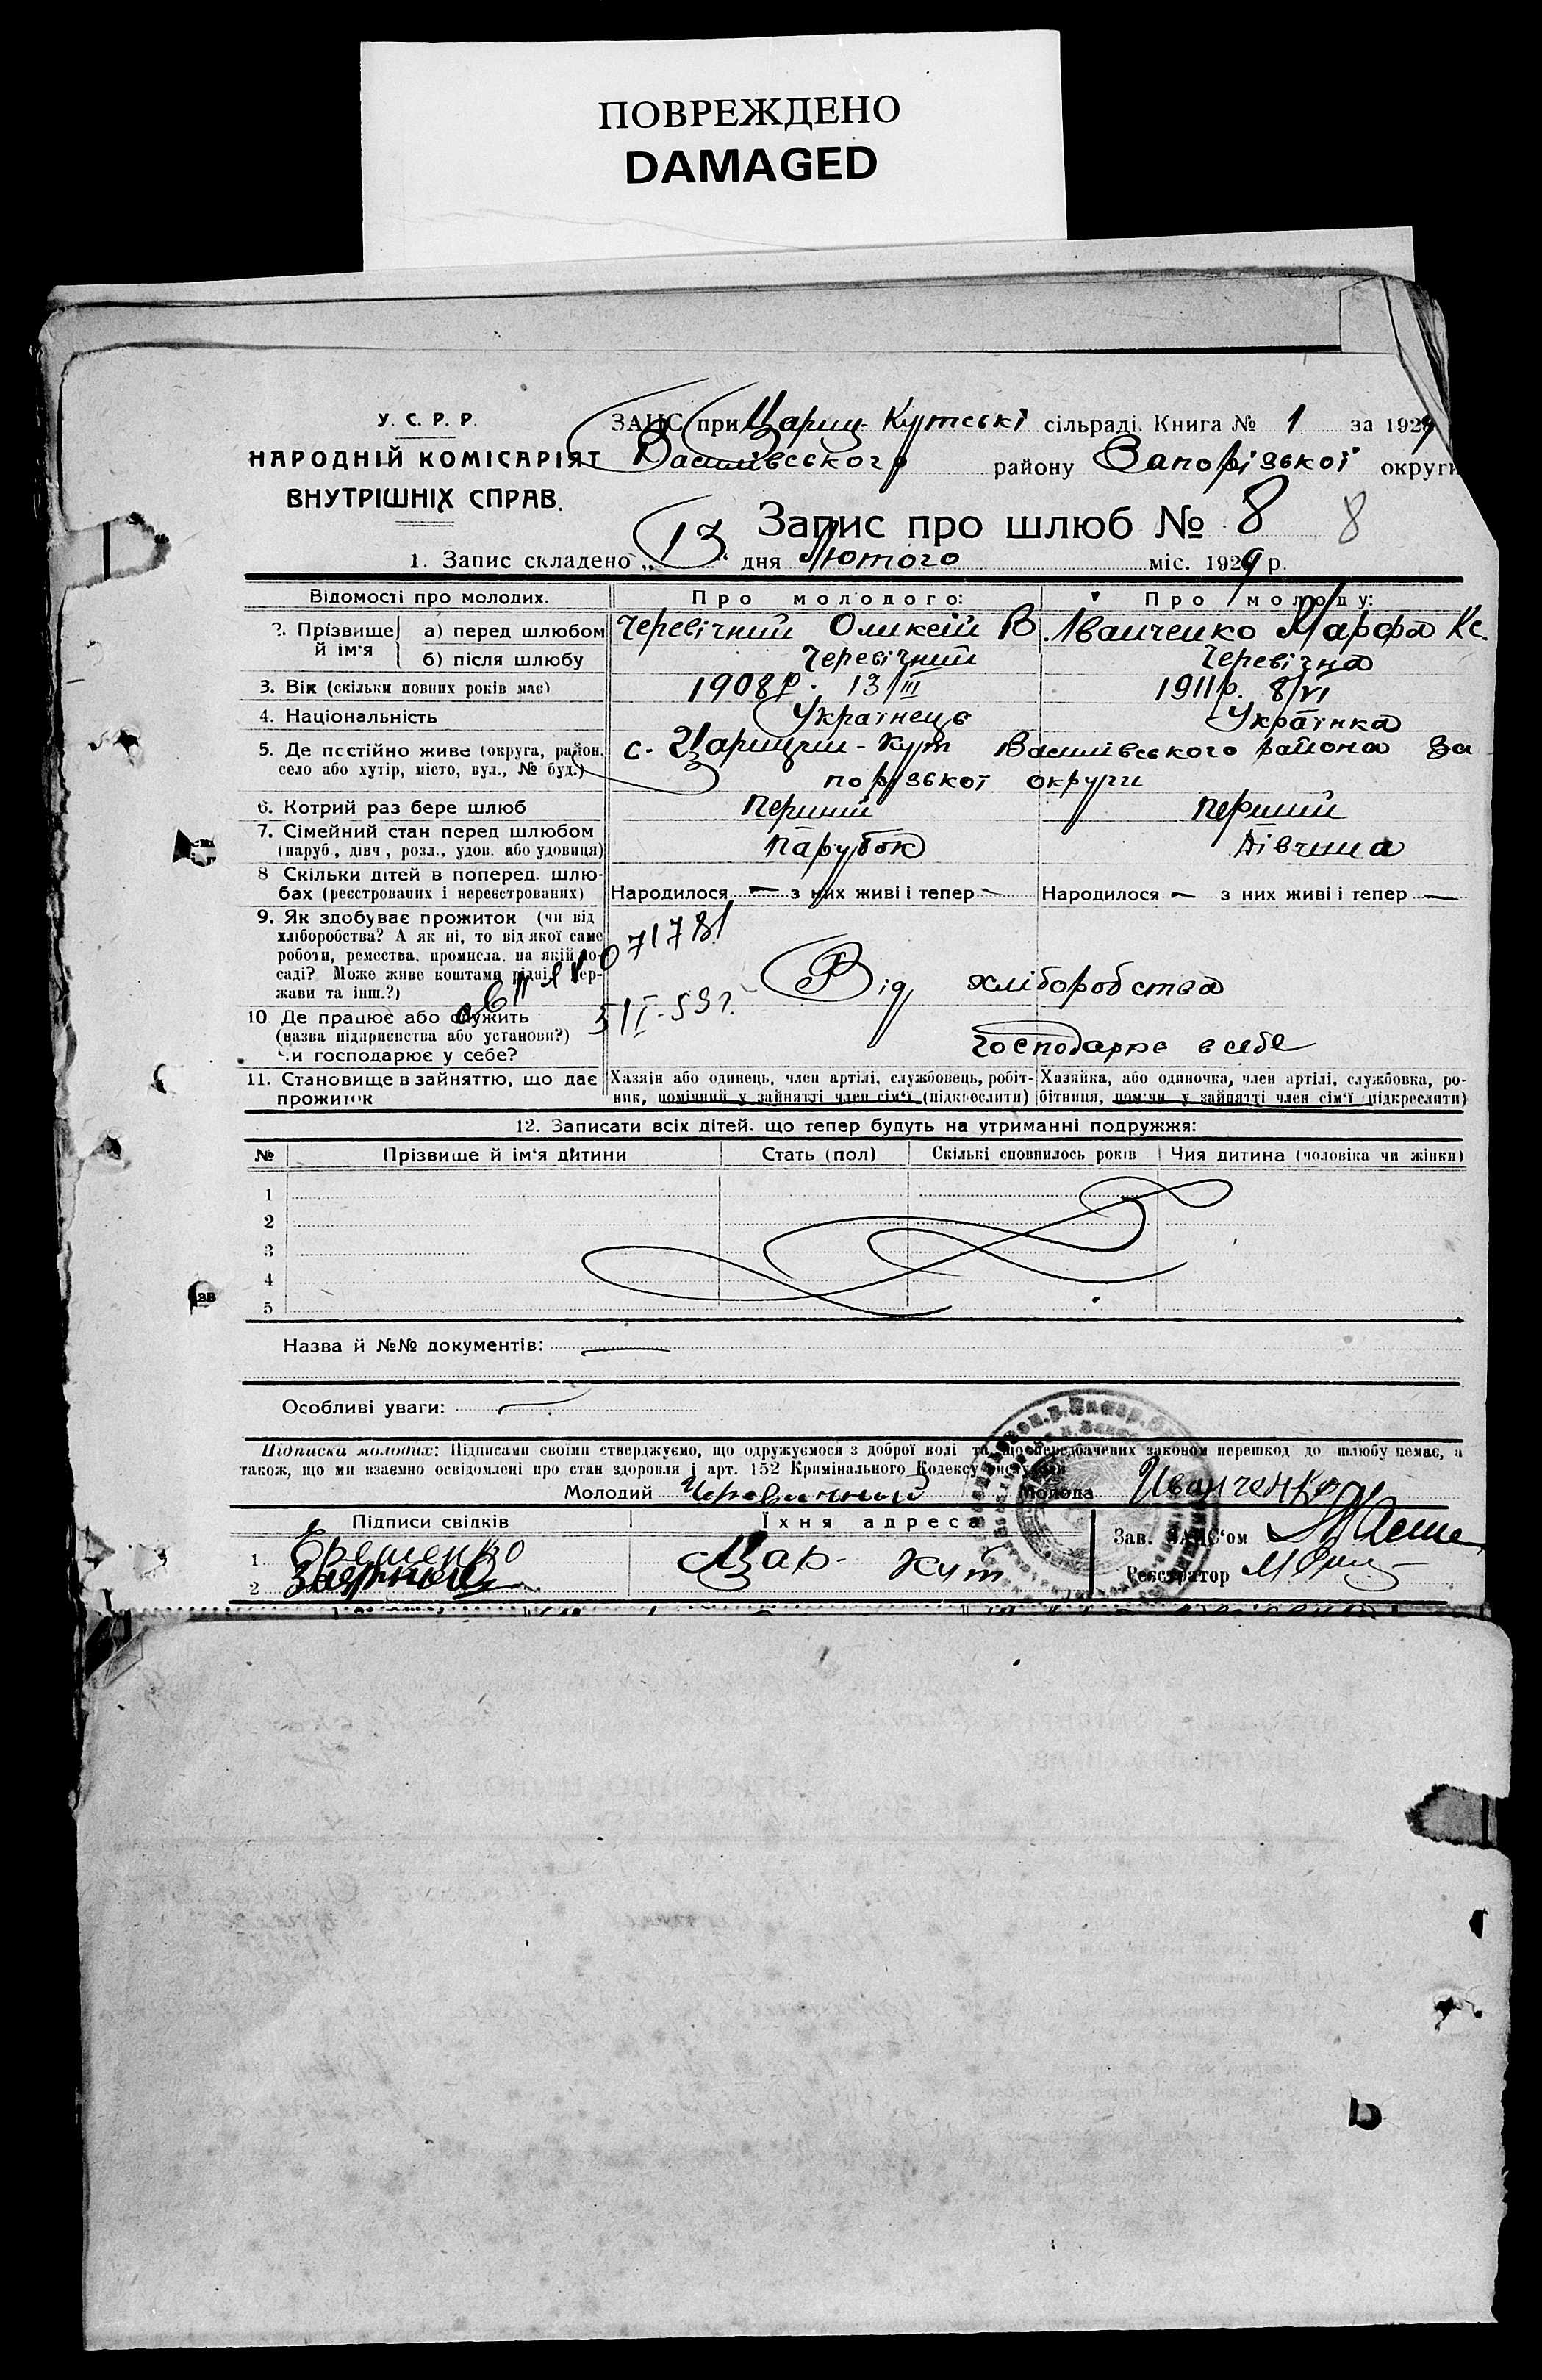 ПОВРЕЖДЕНО
DAMAGED
У. С. Р. Р.
НАРОДНІЙ КОМІСАРІЯТ
ВНУТРІШНІХ СПРАВ.
ЗАГС при Цариц-Кутські сільраді. Книга № 1 за 1929
Василівського району Запорізької округи
Запис про шлюб № 8 8
1. Запис складено „13“ дня Лютого міс. 1929 р.
Відомості про молодих. Про молодого: Про молоду:
2. Прізвище й ім'я а) перед шлюбом Черевічний Оликсій В. Іванченко Марфа Кс.
б) після шлюбу Черевічний Черевічна
3. Вік (скільки повних років має) 1908 р. 13/III 1911 р. 8/VI
4. Національність Українець Українка
5. Де постійно живе (округа, район, с. Царицин-Кут Василівського района За
село або хутір, місто, вул., № буд.) порізької округи
6. Котрий раз бере шлюб Перший Перший
7. Сімейний стан перед шлюбом Парубок Дівчина
(паруб., дівч., розл., удов. або удовиця)
8 Скільки дітей в поперед. шлю-
бах (реєстрованих і нереєстрованих) Народилося — з них живі і тепер — Народилося — з них живі і тепер —
9. Як здобуває прожиток (чи від
хліборобства? А як ні, то від якої саме
роботи, ремества, промисла, на якій по-
саді? Може живе коштами рідні, дер-
жави та інш.?) Від хліборобства
071781
5/I-53г.
10 Де працює або служить
(назва підприємства або установи?)
Чи господарює у себе? Господарює в себе
11. Становище в зайняттю, що дає Хазяїн або одинець, член артілі, службовець, робіт- Хазяйка, або одиночка, член артілі, службовка, ро-
прожиток ник, помічний у зайнятті член сім'ї (підкреслити) бітниця, помічн. у зайнятті член сім'ї (підкреслити)
12. Записати всіх дітей, що тепер будуть на утриманні подружжя:
№ Прізвище й ім'я дитини Стать (пол) Скількі сповнилось років Чия дитина (чоловіка чи жінки)
1
2
3
4
5
Назва й №№ документів: —
Особливі уваги: —
Підписка молодих: Підписами своїми стверджуємо, що одружуємося з доброї волі та що передбачених законом перешкод до шлюбу немає, а
також, що ми взаємно освідомлені про стан здоровля і арт. 152 Кримінального Кодексу
Молодий Черевичный Молода Иванченко
Підписи свідків Їхня адреса Зав. ЗАГС'ом
1 Єременко Цар-Кут
2 Реєстратор